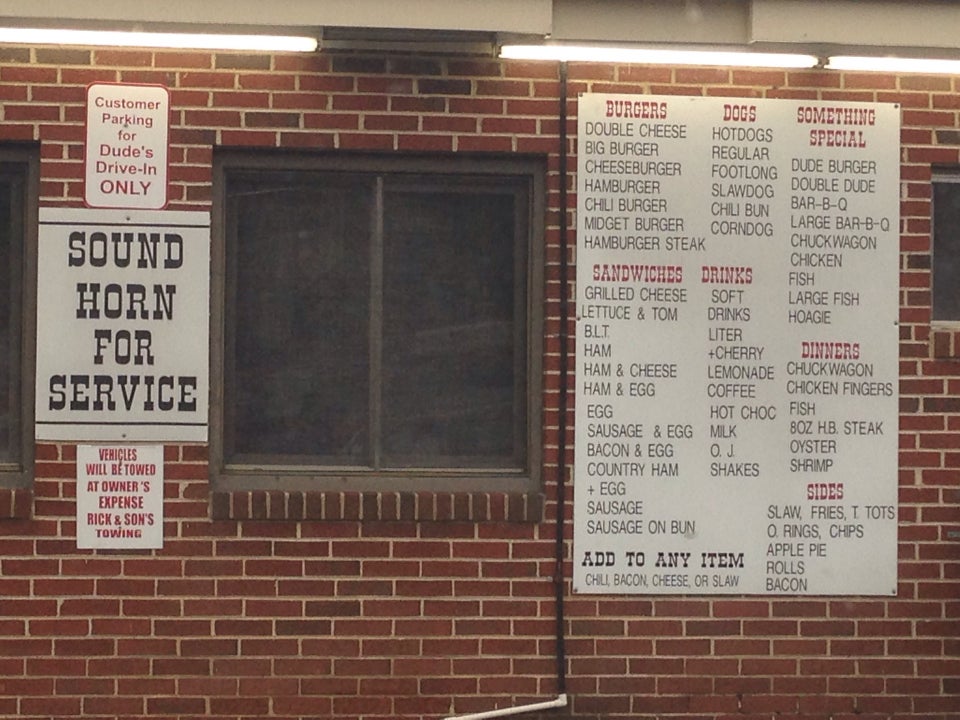 Customer
Parking
for
Dude's
Drive-In
ONLY
SOUND
HORN
FOR
SERVICE
VEHICLES
WILL BE TOWED
AT OWNER'S
EXPENSE
RICK & SON'S
TOWING
BURGERS
DOUBLE CHEESE
BIG BURGER
CHEESEBURGER
HAMBURGER
CHILI BURGER
MIDGET BURGER
HAMBURGER STEAK
SANDWICHES
GRILLED CHEESE
LETTUCE & TOM
B.L.T.
HAM
HAM & CHEESE
HAM & EGG
EGG
SAUSAGE & EGG
BACON & EGG
COUNTRY HAM
+ EGG
SAUSAGE
SAUSAGE ON BUN
ADD TO ANY ITEM
CHILI, BACON, CHEESE, OR SLAW
DOGS
HOTDOGS
REGULAR
FOOTLONG
SLAWDOG
CHILI BUN
CORNDOG
DRINKS
SOFT
DRINKS
LITER
+CHERRY
LEMONADE
COFFEE
HOT CHOC
MILK
O. J.
SHAKES
SOMETHING
SPECIAL
DUDE BURGER
DOUBLE DUDE
BAR-B-Q
LARGE BAR-B-Q
CHUCKWAGON
CHICKEN
FISH
LARGE FISH
HOAGIE
DINNERS
CHUCKWAGON
CHICKEN FINGERS
FISH
8OZ H.B. STEAK
OYSTER
SHRIMP
SIDES
SLAW, FRIES, T. TOTS
O. RINGS, CHIPS
APPLE PIE
ROLLS
BACON